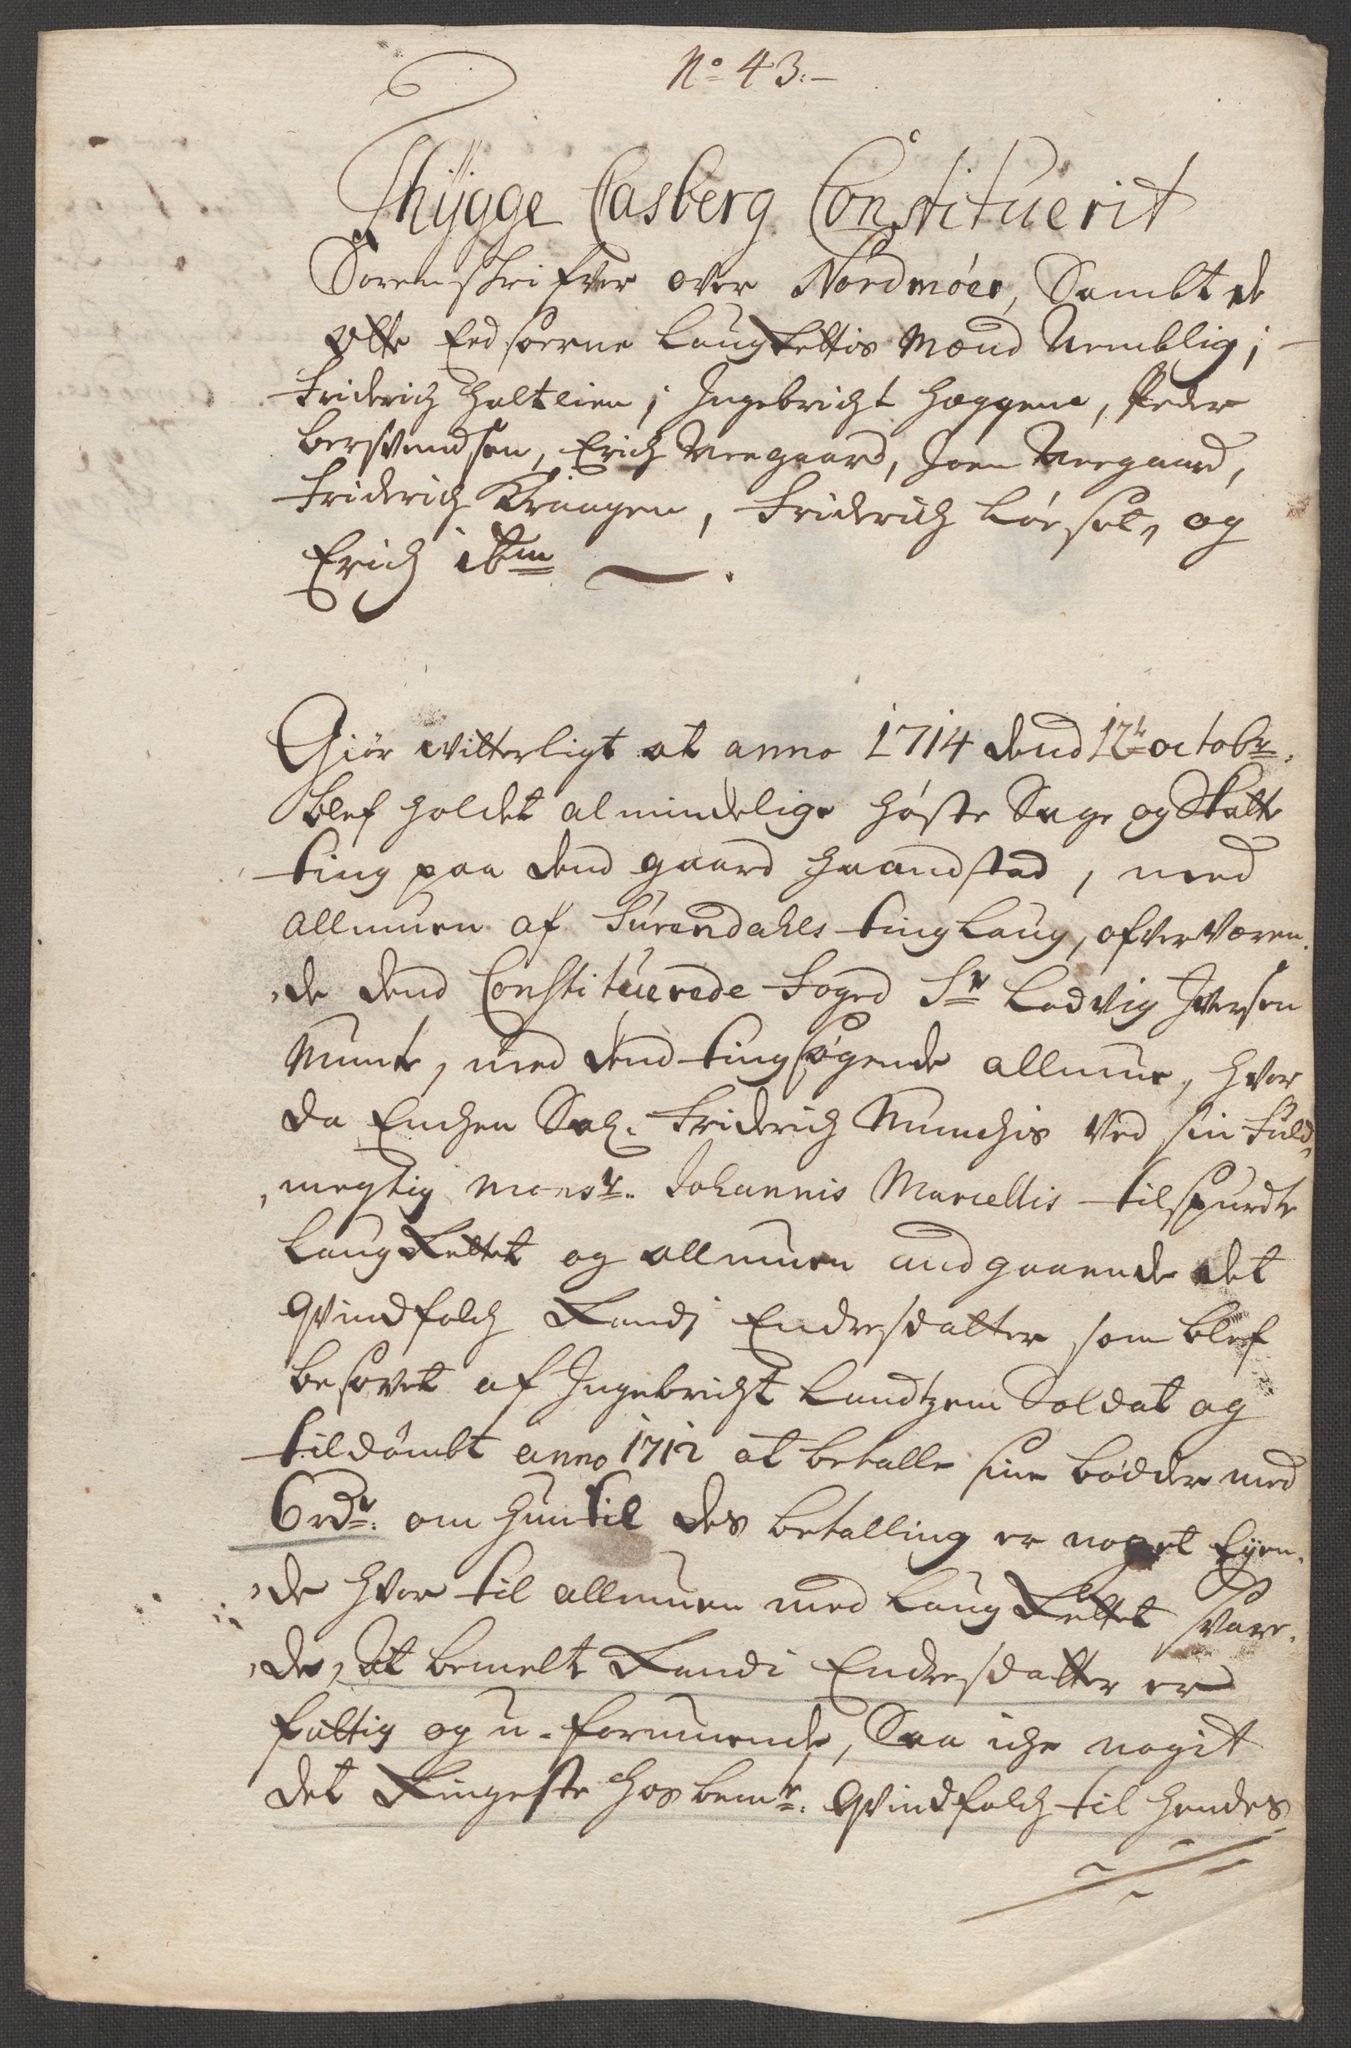 No 43.
Thÿgge Casberg Constituerit
Sorenschrifver over Nordmöer, Sambt de
otte Eedsorne LaugRettis Mænd Nemblig;
Friderich Halteien; Ingebricht Hæggem, Peder
Bersvendsen, Erich Neegaard, Joen Neegaard,
Friderich Kraagen, Friderich Löeset, og
Erich ibm
Giör witterligt at anno 1714 dend 12t octobr:
blef holdet almindelige Höste Sage og Skatte
ting paa dend gaard Haandstad, med
allmuen af Surendahls tinglaug, ofververen-
de dend Constituerede Foged Sr Ludvig Iversen
Munte, med dend tingsögende allmue, hvor
da Enchen Sal. Friderich Munchis ved sin Fuld-
megtig Monsr. Johannis Marcellis tilspurdte
LaugRettet og allmuen andgaaende det
Qvindfolch Randj Endresdatter som blef
besovet af Ingebricht Landtzem Soldat og
tildömbt anno 1712 at betalle sine bödder med
6 rdr: om hun til des betalling er noget Eÿen-
de hvor til allmuen med LaugRettet svare-
de, At bemelte Randi Endresdatter er
fattig og u-formuende, Saa iche nogit
det Ringeste hos bemte: Qvindfolch til hendes